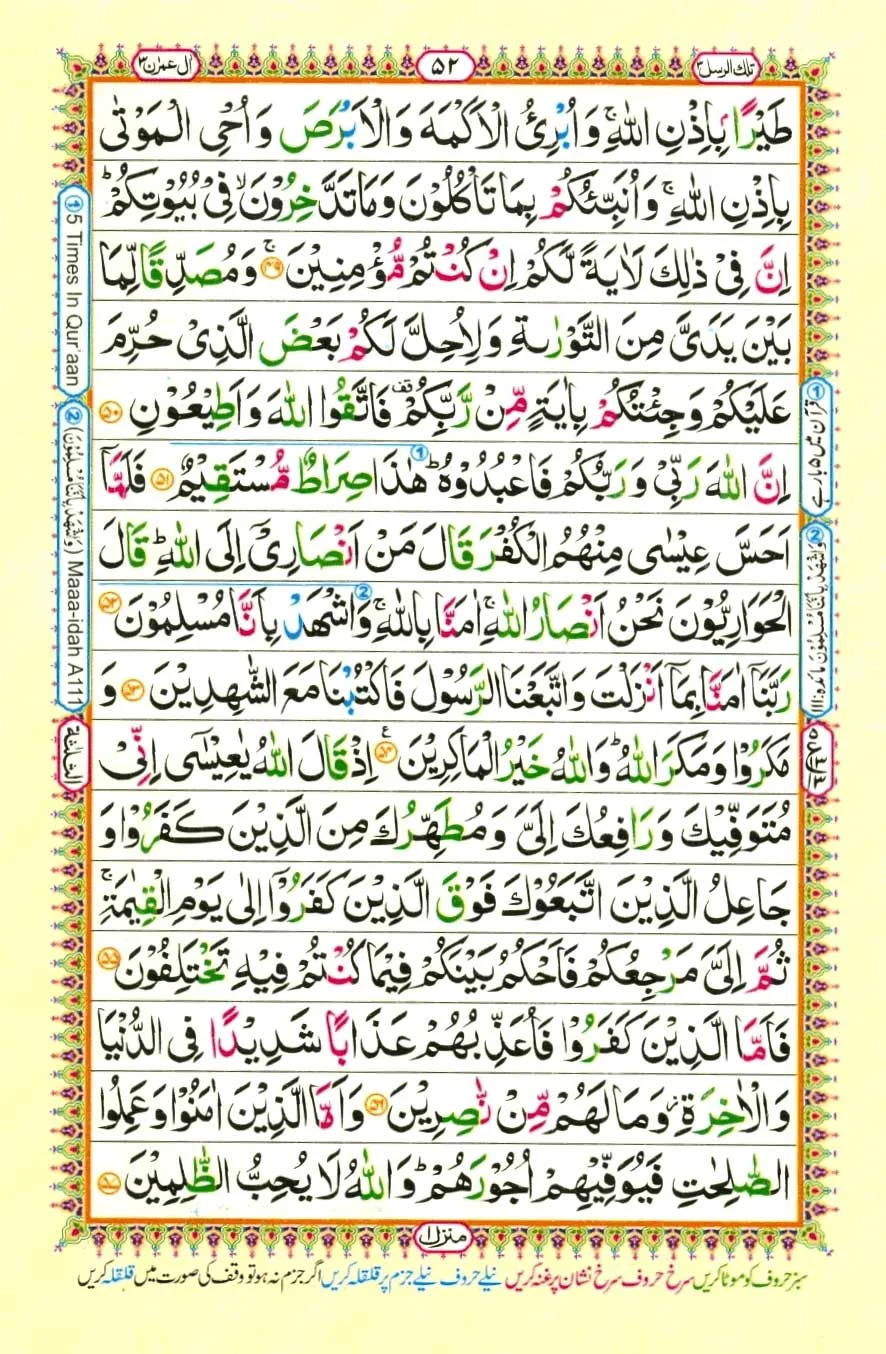 تلك الرسل ٣
٥٢
اٰل عمرٰن ٣
طَيْرًۢا بِاِذْنِ اللّٰهِ ۚ وَ اُبْرِئُ الْاَكْمَهَ وَالْاَبْرَصَ وَ اُحْىِ الْمَوْتٰى
بِاِذْنِ اللّٰهِ ۚ وَ اُنَبِّئُكُمْ بِمَا تَاْكُلُوْنَ وَمَا تَدَّخِرُوْنَ ۙ فِىْ بُيُوْتِكُمْ ؕ
اِنَّ فِىْ ذٰلِكَ لَاٰيَةً لَّكُمْ اِنْ كُنْتُمْ مُّؤْمِنِيْنَ ۚ ﴿۴۹﴾ وَمُصَدِّقًا لِّمَا
بَيْنَ يَدَىَّ مِنَ التَّوْرٰٮةِ وَلِاُحِلَّ لَكُمْ بَعْضَ الَّذِىْ حُرِّمَ
عَلَيْكُمْ وَجِئْتُكُمْ بِاٰيَةٍ مِّنْ رَّبِّكُمْ قف فَاتَّقُوا اللّٰهَ وَاَطِيْعُوْنِ ﴿۵۰﴾
اِنَّ اللّٰهَ رَبِّىْ وَرَبُّكُمْ فَاعْبُدُوْهُ ؕ هٰذَا صِرَاطٌ مُّسْتَقِيْمٌ ﴿۵۱﴾ فَلَمَّاۤ
اَحَسَّ عِيْسٰى مِنْهُمُ الْكُفْرَ قَالَ مَنْ اَنْصَارِىْۤ اِلَى اللّٰهِ ؕ قَالَ
الْحَوَارِيُّوْنَ نَحْنُ اَنْصَارُ اللّٰهِ ۚ اٰمَنَّا بِاللّٰهِ ۚ وَاشْهَدْ بِاَنَّا مُسْلِمُوْنَ ﴿۵۲﴾
رَبَّنَاۤ اٰمَنَّا بِمَاۤ اَنْزَلْتَ وَاتَّبَعْنَا الرَّسُوْلَ فَاكْتُبْنَا مَعَ الشّٰهِدِيْنَ ﴿۵۳﴾ وَ
مَكَرُوْا وَمَكَرَ اللّٰهُ ؕ وَاللّٰهُ خَيْرُ الْمَاكِرِيْنَ ﴿۵۴﴾ ع اِذْ قَالَ اللّٰهُ يٰعِيْسٰۤى اِنِّىْ
مُتَوَفِّيْكَ وَرَافِعُكَ اِلَىَّ وَمُطَهِّرُكَ مِنَ الَّذِيْنَ كَفَرُوْا وَ
جَاعِلُ الَّذِيْنَ اتَّبَعُوْكَ فَوْقَ الَّذِيْنَ كَفَرُوْۤا اِلٰى يَوْمِ الْقِيٰمَةِ ۚ
ثُمَّ اِلَىَّ مَرْجِعُكُمْ فَاَحْكُمُ بَيْنَكُمْ فِيْمَا كُنْتُمْ فِيْهِ تَخْتَلِفُوْنَ ﴿۵۵﴾
فَاَمَّا الَّذِيْنَ كَفَرُوْا فَاُعَذِّبُهُمْ عَذَابًا شَدِيْدًا فِى الدُّنْيَا
وَالْاٰخِرَةِ ز وَمَا لَهُمْ مِّنْ نّٰصِرِيْنَ ﴿۵۶﴾ وَاَمَّا الَّذِيْنَ اٰمَنُوْا وَعَمِلُوا
الصّٰلِحٰتِ فَيُوَفِّيْهِمْ اُجُوْرَهُمْ ؕ وَاللّٰهُ لَا يُحِبُّ الظّٰلِمِيْنَ ﴿۵۷﴾
① قرآن میں ۵ بار ہے
② وَاشْهَدْ بِاَنَّنَا مُسْلِمُوْنَ مائدہ: ۱۱۱
① 5 Times In Qur'aan
② (وَاشْهَدْ بِاَنَّنَا مُسْلِمُوْنَ) Maaa-idah A111
الثلٰثة
منزل ۱
سبز حروف کو موٹا کریں سرخ حروف سرخ نشان پر غنہ کریں نیلے حروف نیلے جزم پر قلقلہ کریں اگر جزم نہ ہو تو وقف کی صورت میں قلقلہ کریں